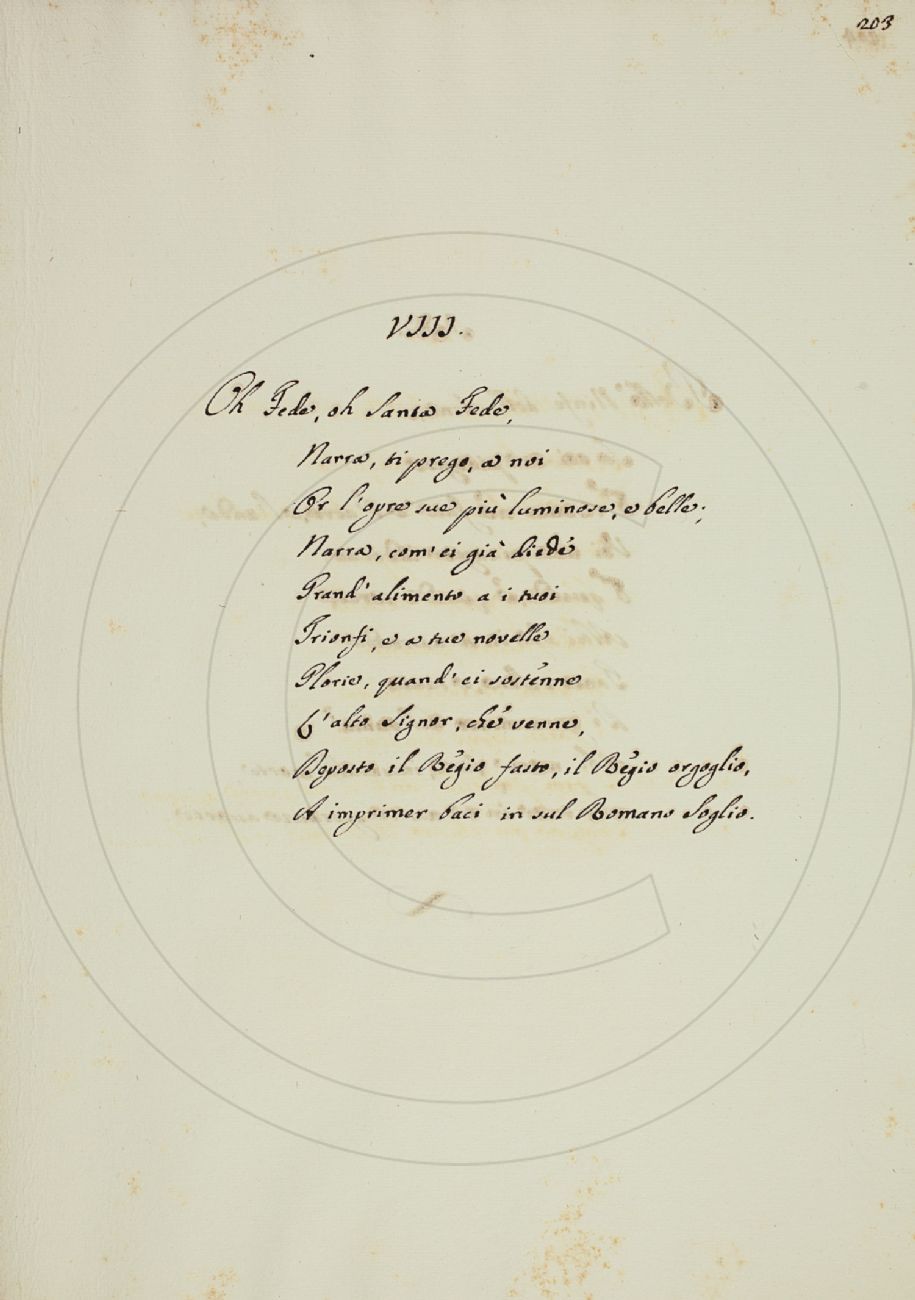 203
VIII.
Oh Fede, oh Santa Fede,
Narra, ti prego, a noi
Or l'opre sue più luminose, e belle;
Narra, com' ei già diede
Grand' alimento a i tuoi
Trionfi, e a tue novelle
Glorie, quand' ei sostenne
L'alto Signor, che venne,
Deposto il Règio fasto, il Règio orgoglio,
A imprimer baci in sul Romano Soglio.